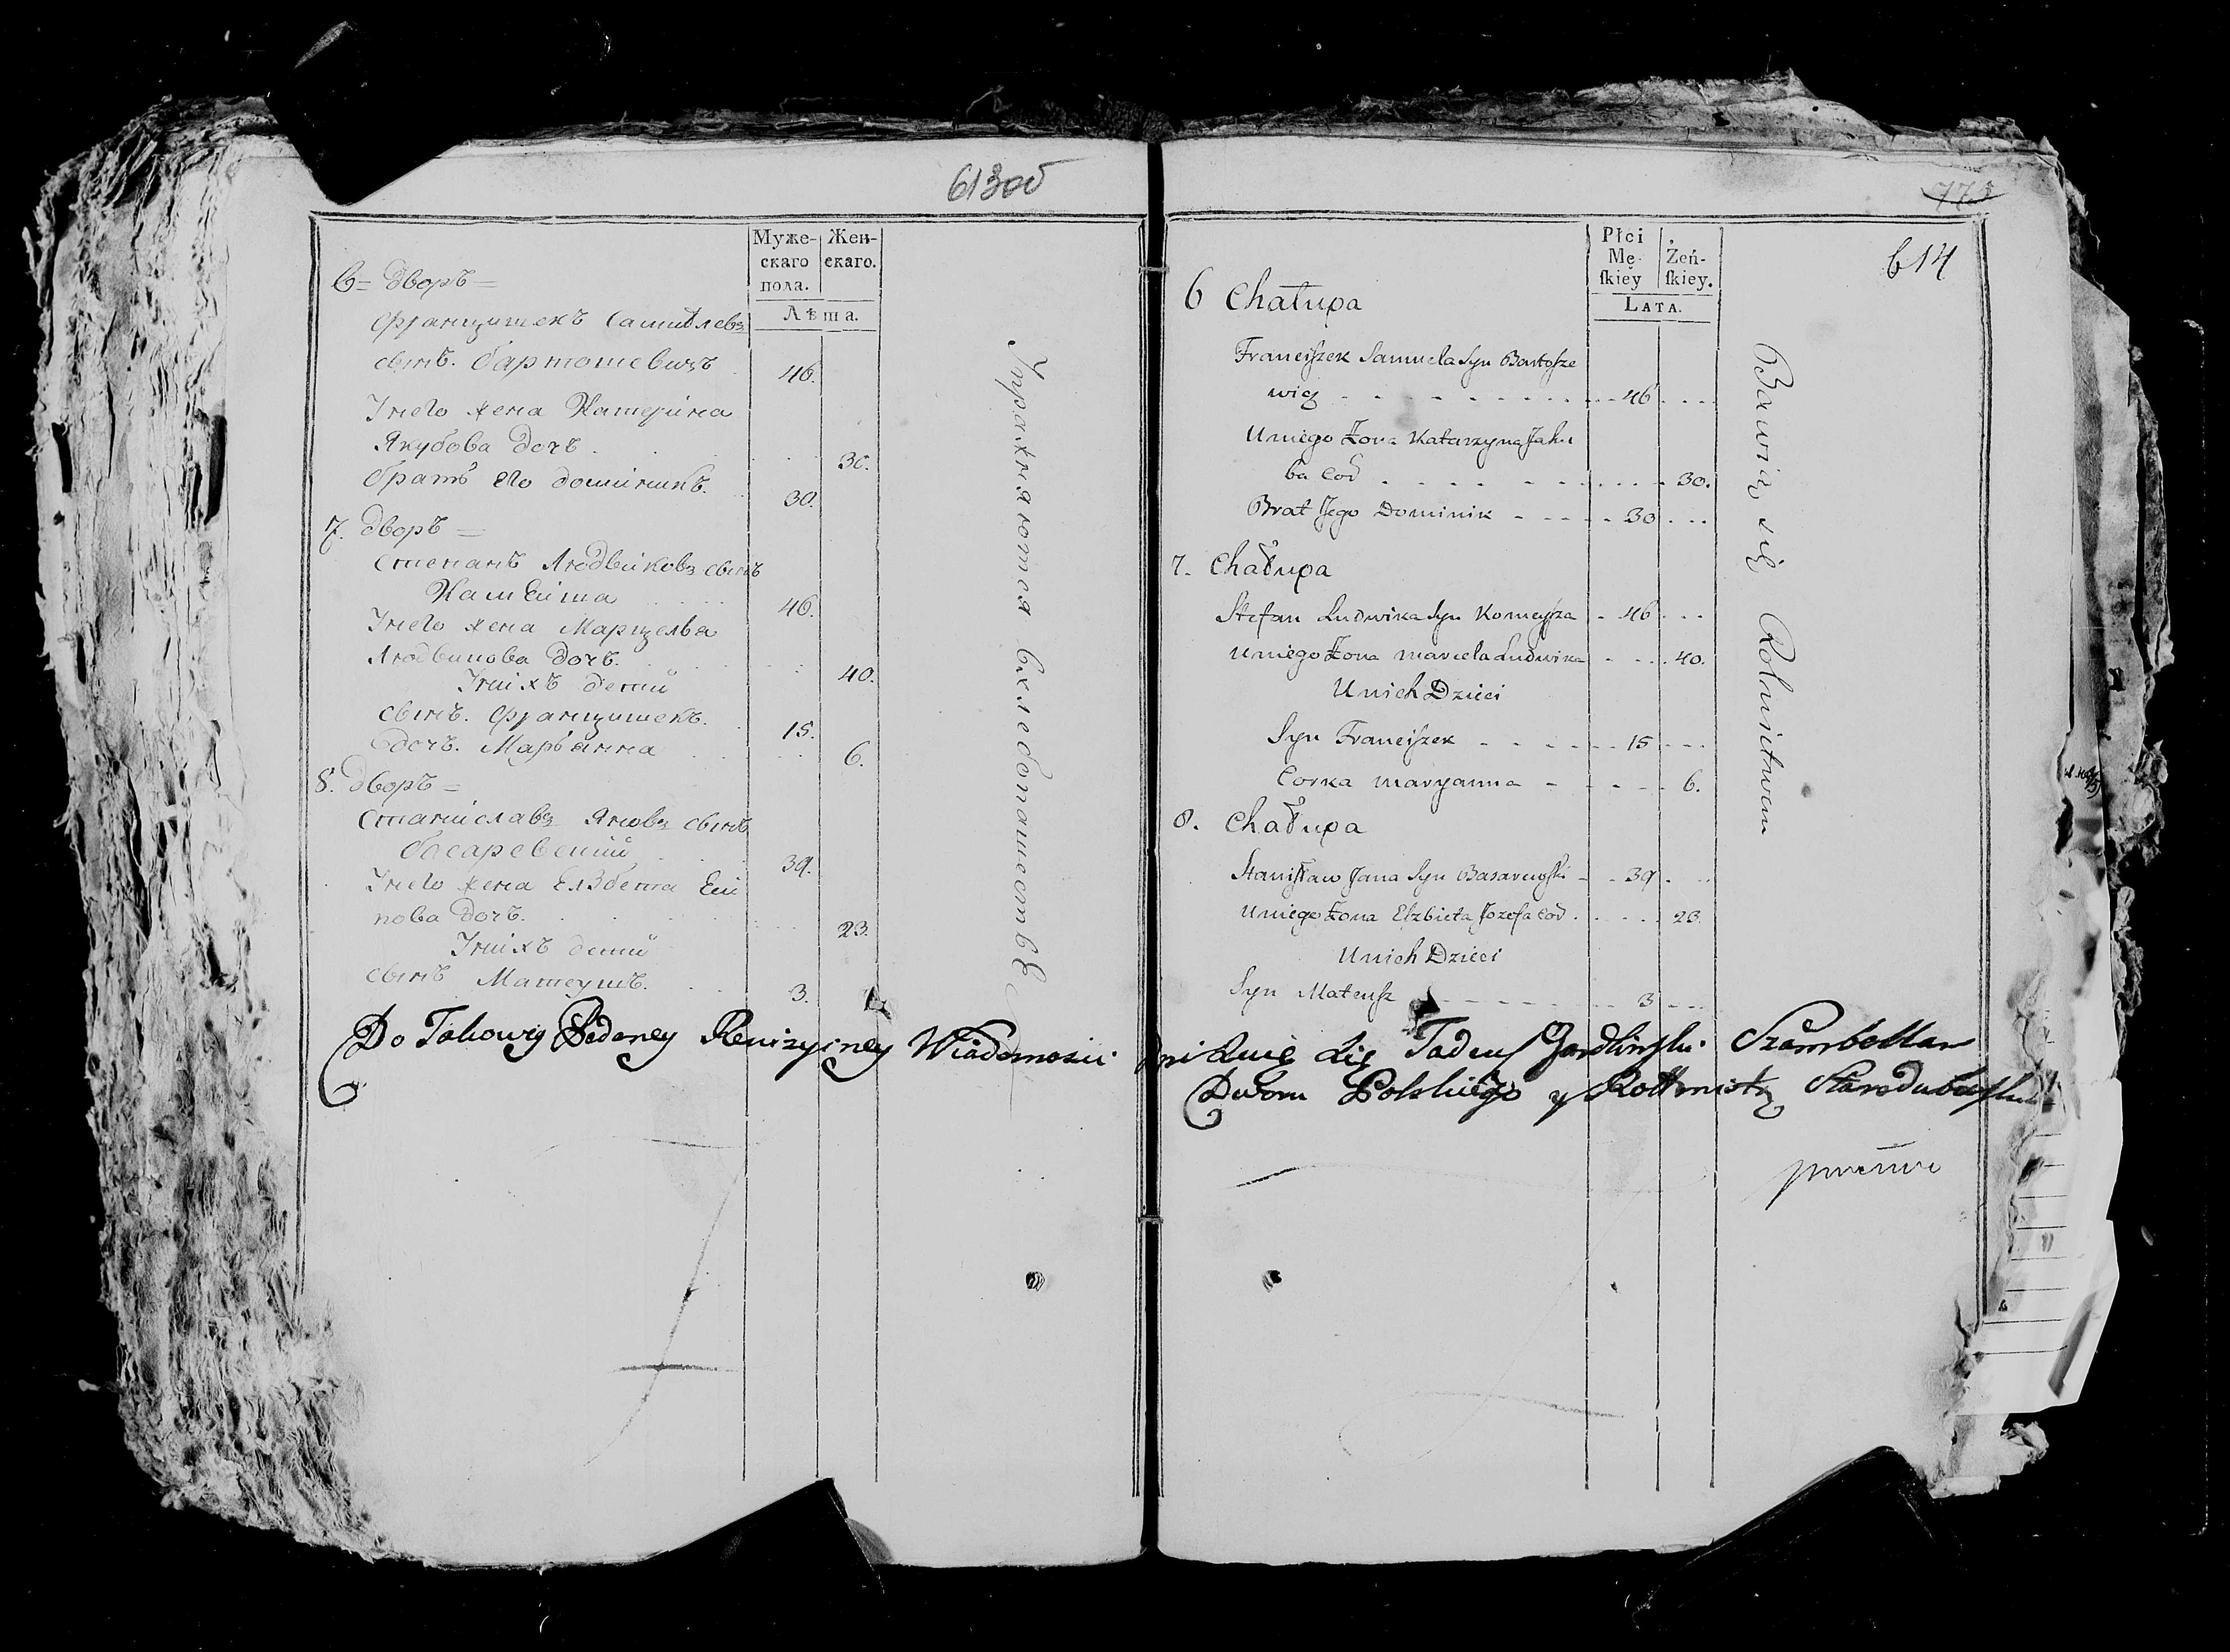 613об
Муже-
скаго
пола.
Жен-
скаго.
Лѣта.
6= дворъ=
Францишекъ Самуйлевъ
сынъ. Бартошевичъ 46.
Унего жена Катерина
Якубова дочъ. 30.
братъ его доминикъ. 30.
7. дворъ=
Степанъ Людвиковъ сынъ
46.
Унего жена Марцелья
Людвикова дочъ. 40.
Унихъ детий
сынъ. Францишекъ. 15.
дочъ. Марьянна 6.
8. дворъ=
Станиславъ Яновъ сынъ
Басаревский 39.
Унего жена Елзбета
дочъ. 23.
Унихъ детий
сынъ Матеушъ. 3.
Упражняются вхлебопашестве
773
614
Płci
Mę-
ſkiey
Żeń-
ſkiey.
LATA.
6 Chałupa
Franciszek Samuela Syn Bartosze
wicz 46
Uniego Żona Katarzyna Jaku
ba Cod 30.
Brat Jego Dominik 30
7. Chałupa
Stefan Ludwika Syn 46
Uniego Żona Marcela Ludwika 40.
Unich Dzieci
Syn Franciszek 15
Corka Maryanna 6.
8. Chałupa
Stanisław Jana Syn Basarewski 39
Uniego Żona Elzbieta Jozefa Cod. 23.
Unich Dzieci
Syn Mateusz 3
Bawią się Rolnictwem
Do Takowey Rewizyiney Wiadomosci Się Tadeusz Szambellan
Dworu Polskiego y Rottmistrz